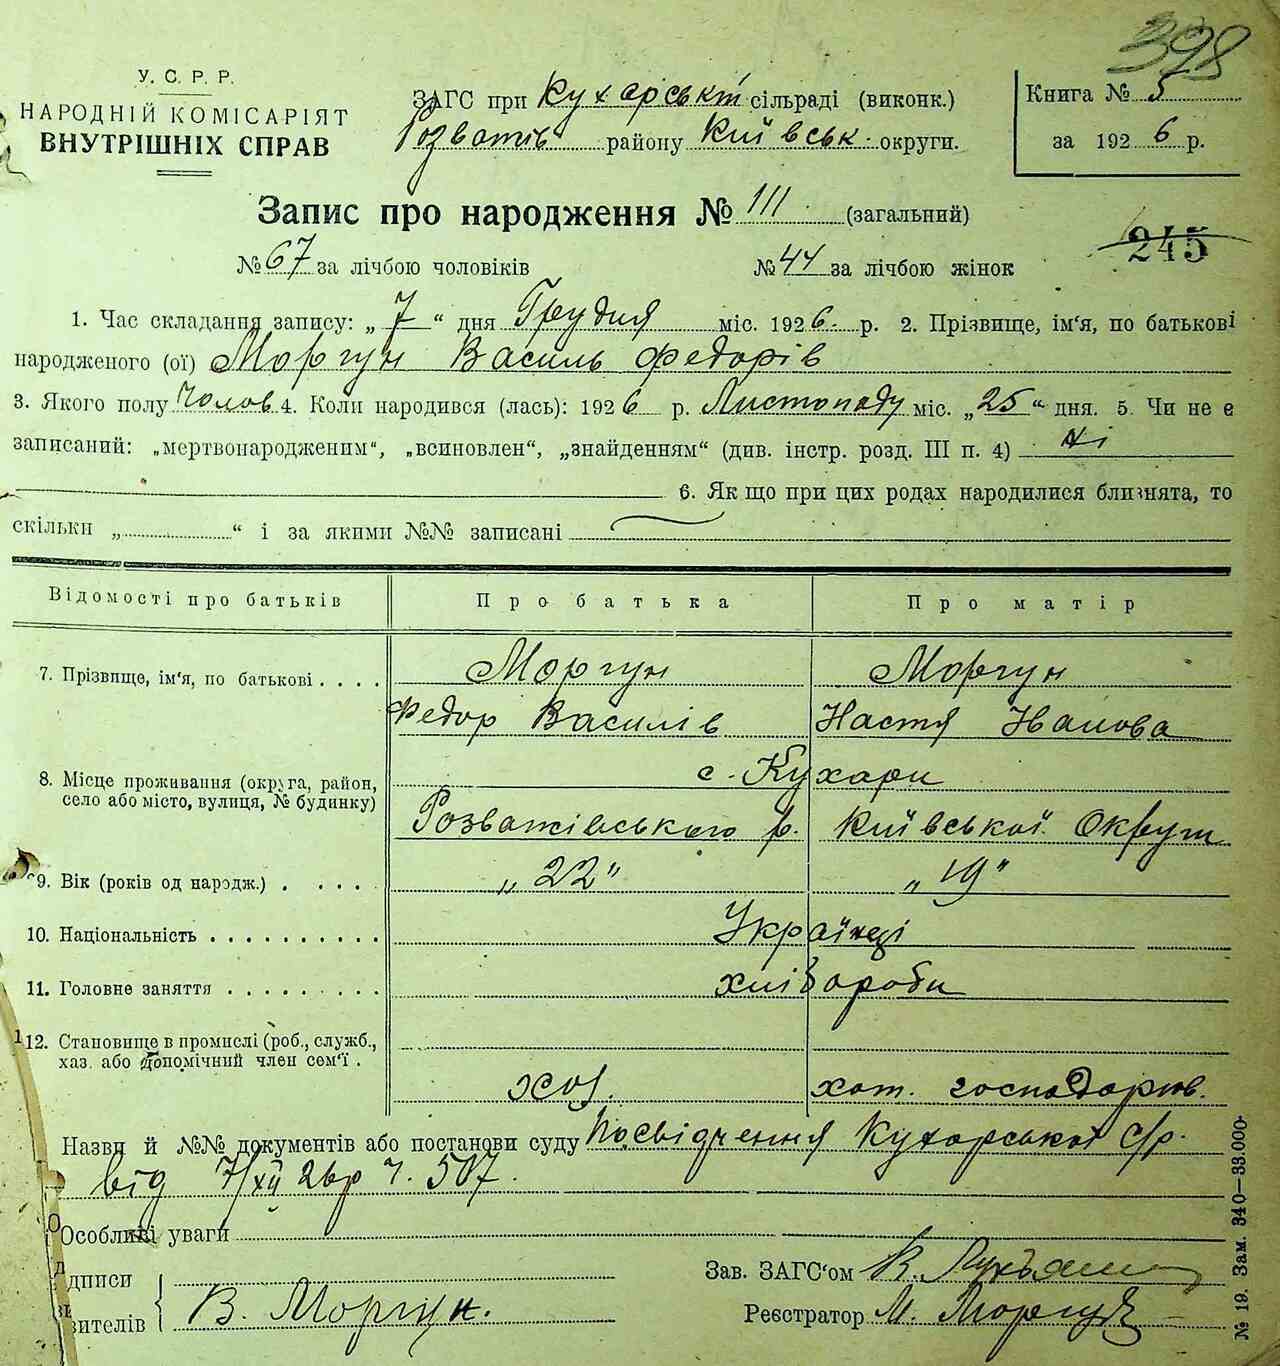 398
У. С. Р. Р.
НАРОДНІЙ КОМІСАРІЯТ
ВНУТРІШНІХ СПРАВ
ЗАГС при Кухарській сільраді (виконк.)
Розватів району Київськ. округи.
Книга № 5
за 1926 р.
Запис про народження № 111 (загальний)
245
№ 67 за лічбою чоловіків № 44 за лічбою жінок
1. Час складання запису: „7“ дня Грудня міс. 1926 р. 2. Прізвище, ім‘я, по батькові
народженого (ої) Моргун Василь Федорів
3. Якого полу Чолов 4. Коли народився (лась): 1926 р. Листопаду міс. „25“ дня. 5. Чи не є
записаний: „мертвонародженим“, „всиновлен“, „знайденням“ (див. інстр. розд. III п. 4) ні
6. Як що при цих родах народилися близнята, то
скільки „ “ і за якими №№ записані
Відомості про батьків Про батька Про матір
7. Прізвище, ім‘я, по батькові . . . . Моргун Моргун
Федор Василів Настя Іванова
8. Місце проживання (округа, район,
село або місто, вулиця, № будинку)
с. Кухари
Розважівського р. Київської Округи
9. Вік (років од народж.) . . . . . „22“ „19“
10. Національність . . . . . . . . . . Українці
11. Головне заняття . . . . . . . . . хлібароби
12. Становище в промислі (роб., служб.,
хаз. або допомічний член сем‘ї .
хоз. хат. господарів.
Назви й №№ документів або постанови суду Посвідчення Кухарської с/р.
від 7/XII 26р ч. 507.
Особливі уваги
дписи
вителів
В. Моргун.
Зав. ЗАГС‘ом В.
Реєстратор М. Моргун
№ 19. Зам. 340—33.000